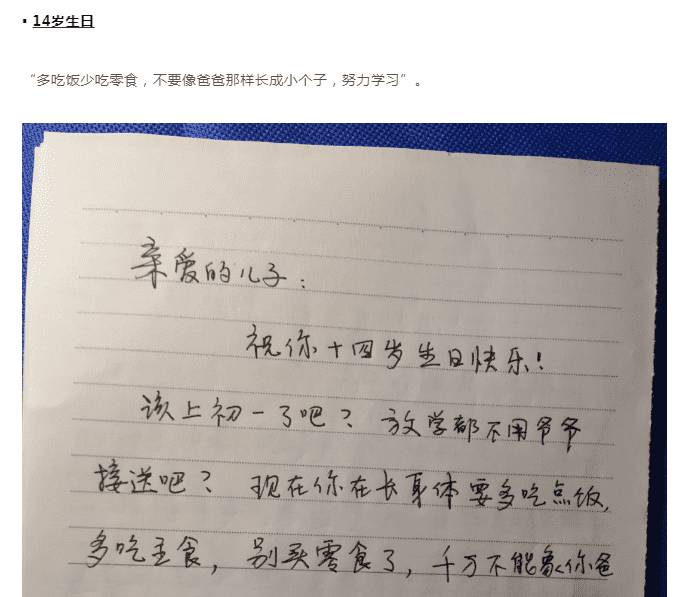 ▪ 14岁生日
“多吃饭少吃零食，不要像爸爸那样长成小个子，努力学习”。
亲爱的儿子：
祝你十四岁生日快乐！
该上初一了吧？放学都不用爷爷
接送吧？现在你在长身体要多吃点饭，
多吃主食，别买零食了，千万不能象你爸